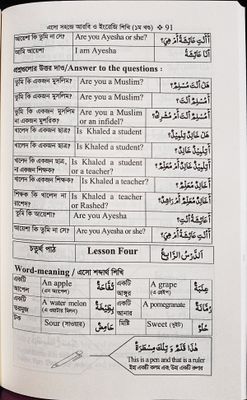 এসো সহজে আরবি ও ইংরেজি শিখি (১ম খণ্ড) ❖ 91
আয়েশা কি তুমি না সে? Are you Ayesha or she? أَأَنْتِ عَائِشَةُ أَمْ هِيَ؟
আমি আয়েশা I am Ayesha أَنَا عَائِشَةُ
প্রশ্নগুলোর উত্তর দাও/Answer to the questions :
তুমি কি একজন মুসলিম? Are you a Muslim? هَلْ أَنْتَ مُسْلِمٌ؟
তুমি কি একজন মুসলিম? Are you a Muslim? أَأَنْتَ مُسْلِمٌ؟
তুমি কি একজন মুসলিম না একজন মুশরিক? Are you a Muslim or an infidel? أَأَنْتَ مُسْلِمٌ أَمْ مُشْرِكٌ؟
খালেদ কি একজন ছাত্র? Is Khaled a student هَلْ خَالِدٌ تِلْمِيْذٌ؟
খালেদ কি একজন ছাত্র? Is Khaled a student
খালেদ কি একজন ছাত্র, না একজন শিক্ষক? Is Khaled a student or a teacher?
খালেদ কি একজন শিক্ষক? Is Khaled a teacher?
শিক্ষক কি খালেদ না রাশেদ? Is Khaled a teacher or Rashed?
তুমি কি আয়েশা? Are you Ayesha أَأَنْتِ عَائِشَةُ؟
আয়েশা কি তুমি না সে? Are you Ayesha or she? أَأَنْتِ عَائِشَةُ أَمْ هِيَ؟
চতুর্থ পাঠ Lesson Four اَلدَّرْسُ الرَّابِعُ
Word-meaning / এসো শব্দার্থ শিখি
একটি আপেল An apple (এন আপেল) تُفَّاحَةٌ একটি আঙ্গুর A grape (এ গ্রেইপ) عِنَبَةٌ
একটি তরমুজ A water melon (এ ওয়াটার মিলন) بِطِّيْخَةٌ একটি আনার A pomegranate رُمَّانَةٌ
টক Sour (সাওয়ার) حَامِضٌ মিষ্টি Sweet (সুইট) حُلْوٌ
هٰذَا قَلَمٌ وَ تِلْكَ مِسْطَرَةٌ
This is a pen and that is a ruler
ইহা একটি কলম এবং উহা একটি রুলার